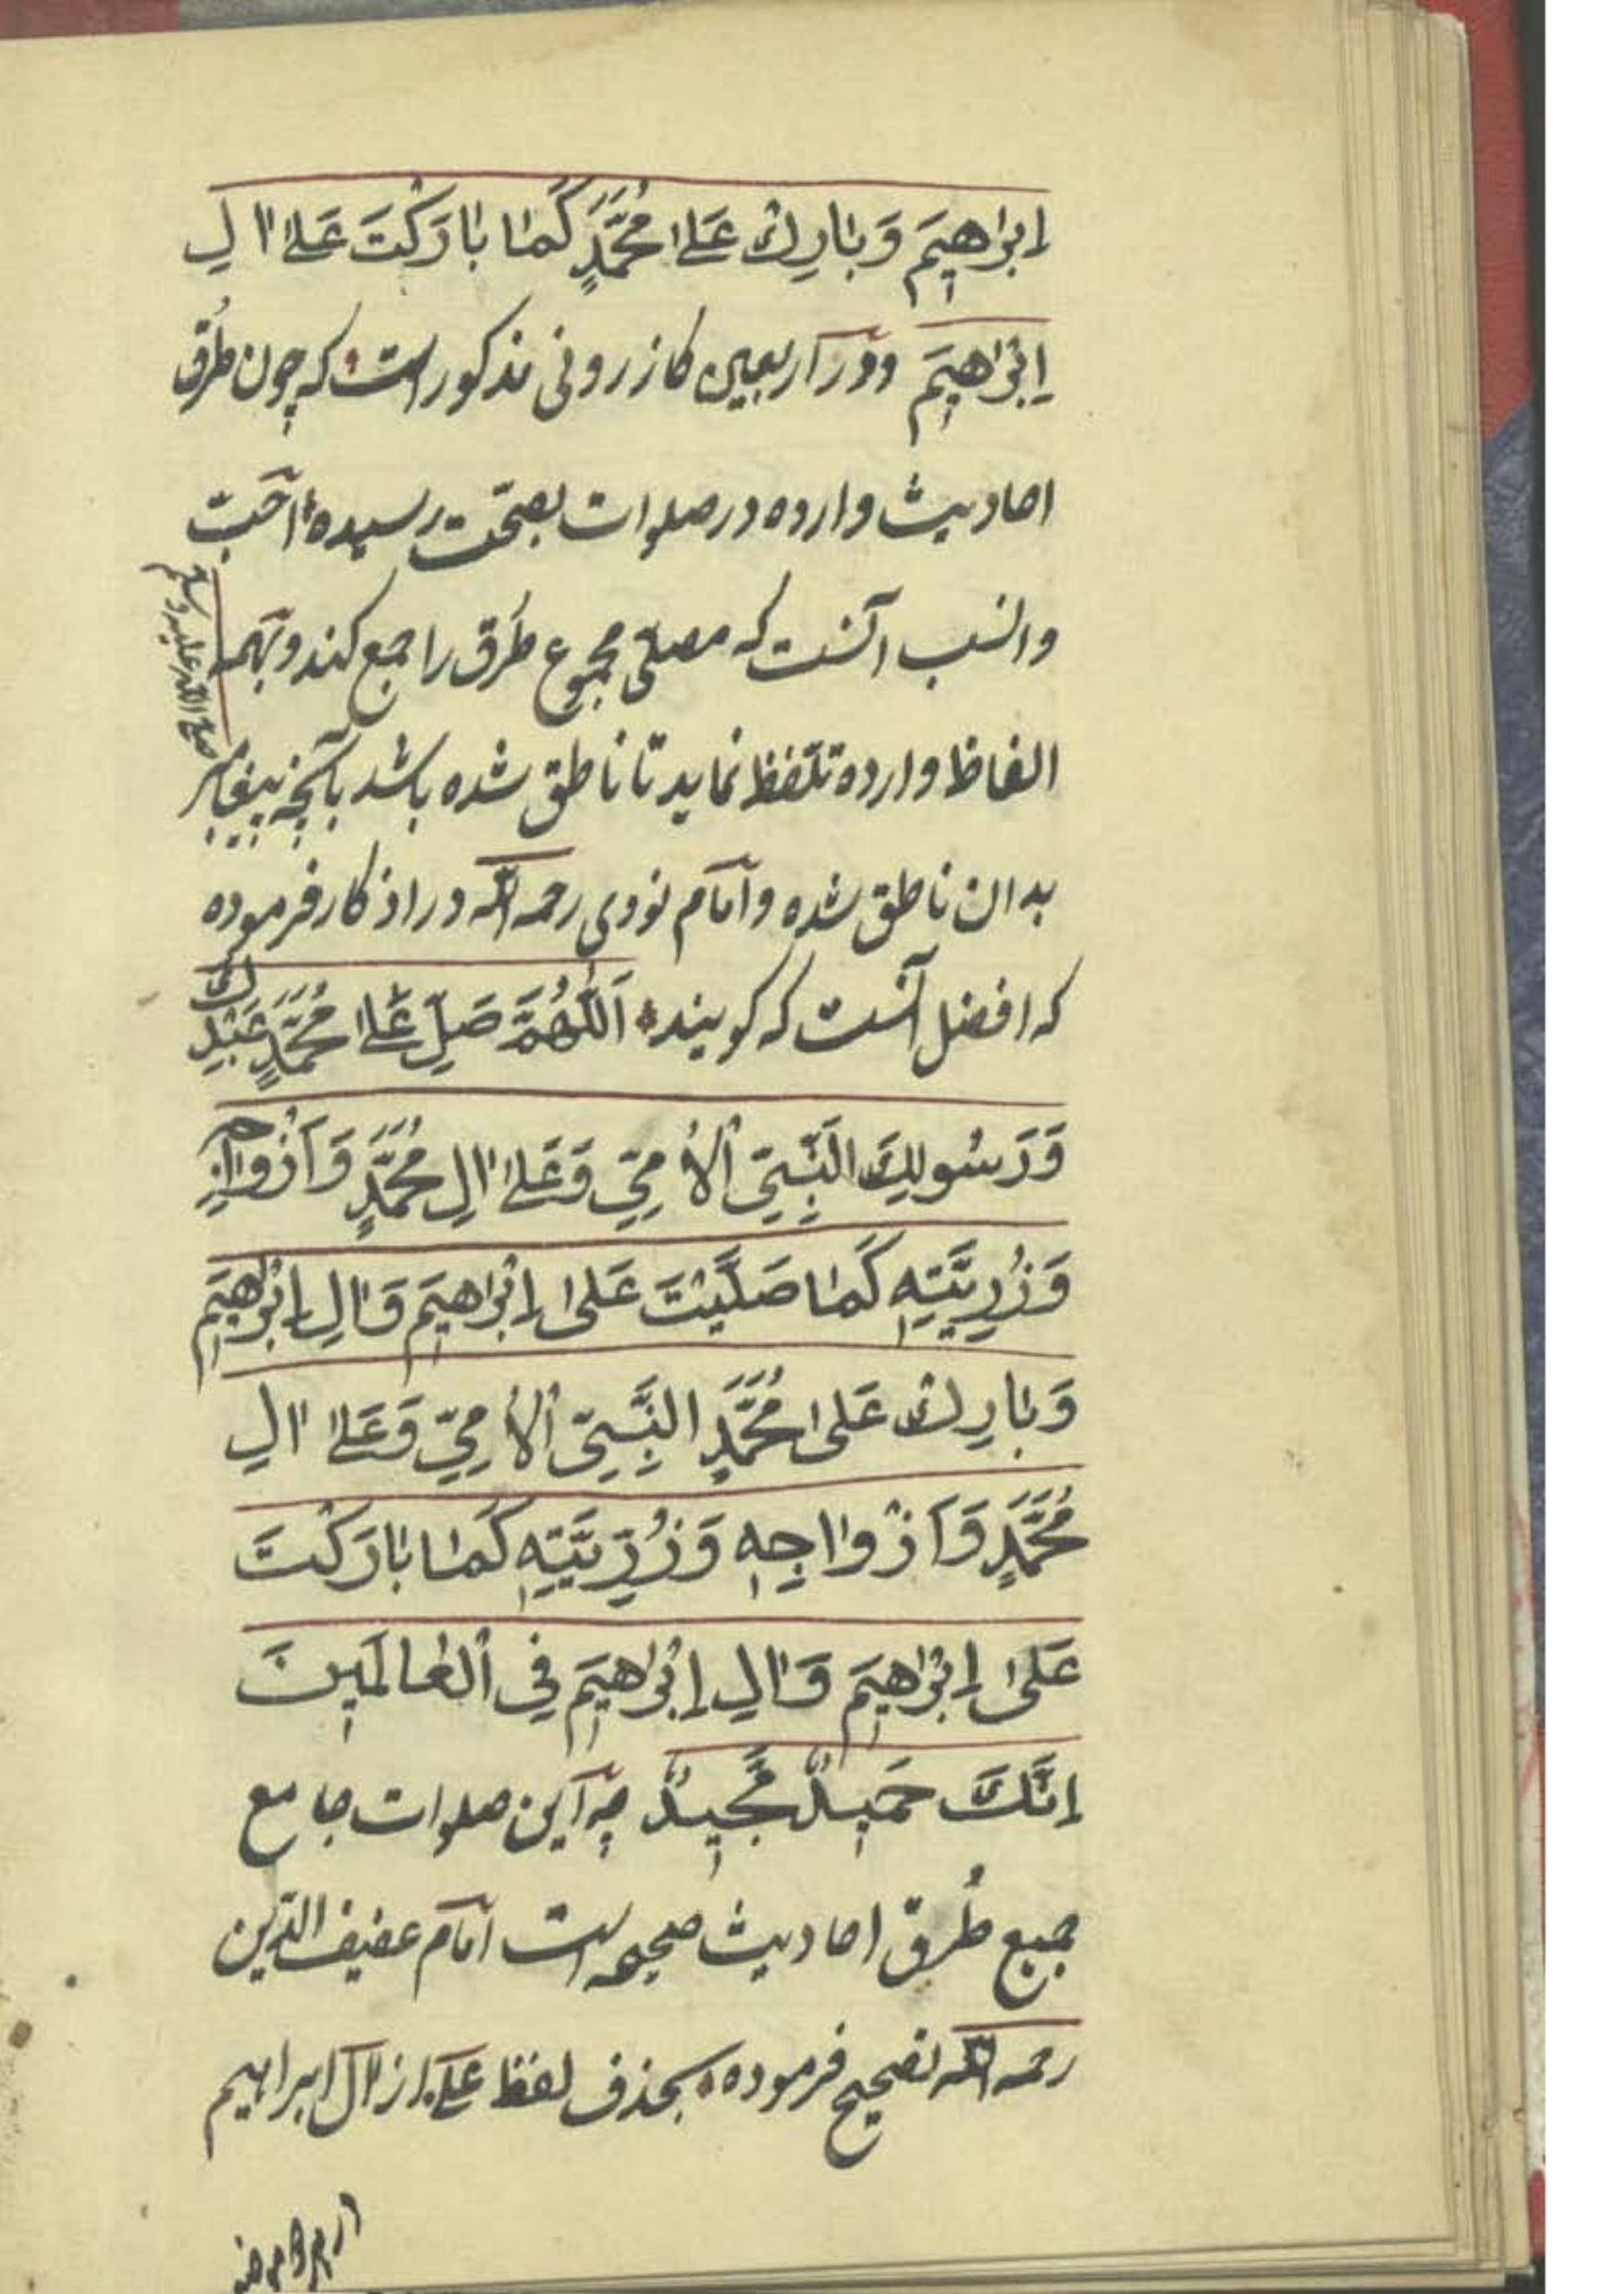 اِبْرَاهِيمَ وَبَارِكْ عَلَىٰ مُحَمَّدٍ كَمَا بَارَكْتَ عَلَىٰ اٰلِ
اِبْرَاهِيمَ ودر اربعین کازرونی مذکور است که چون طُرُق
احادیث وارده در صلوات بصحّت رسیده احَبّ
وانسب آنست که مصلّی مجموع طُرُق را جمع کند و بهمه
الفاظ وارده تلفّظ نماید تا ناطق شده باشد بآنچه پیغامبر
صلى الله عليه وسلم
بدان ناطق شده و امام نووی رحمه الله در اذکار فرموده
که افضل آنست که کویند اَللّٰهُمَّ صَلِّ عَلَىٰ مُحَمَّدٍ عَبْدِكَ
وَرَسُولِكَ النَّبِيِّ الْاُمِّيِّ وَعَلَىٰ اٰلِ مُحَمَّدٍ وَاَزْوَاجِهِ
وَذُرِّيَّتِهِ كَمَا صَلَّيْتَ عَلَىٰ اِبْرَاهِيمَ وَاٰلِ اِبْرَاهِيمَ
وَبَارِكْ عَلَىٰ مُحَمَّدٍ النَّبِيِّ الْاُمِّيِّ وَعَلَىٰ اٰلِ
مُحَمَّدٍ وَاَزْوَاجِهِ وَذُرِّيَّتِهِ كَمَا بَارَكْتَ
عَلَىٰ اِبْرَاهِيمَ وَاٰلِ اِبْرَاهِيمَ فِي الْعَالَمِينَ
اِنَّكَ حَمِيدٌ مَّجِيدٌ چه این صلوات جامع
جمیع طُرُق احادیث صحیحه است امام عفیف الدّین
رحمه الله تصحیح فرموده بحذف لفظ عَلىٰ از اٰل ابراهیم